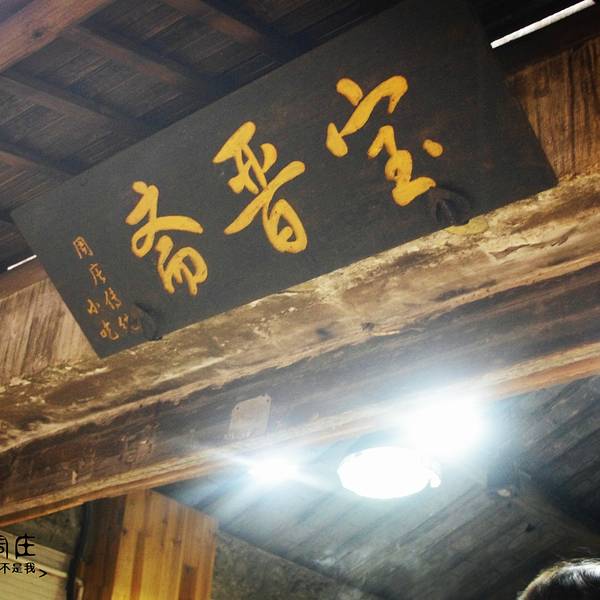 宝晋斋
周庄传统
小吃
周庄
不是我>